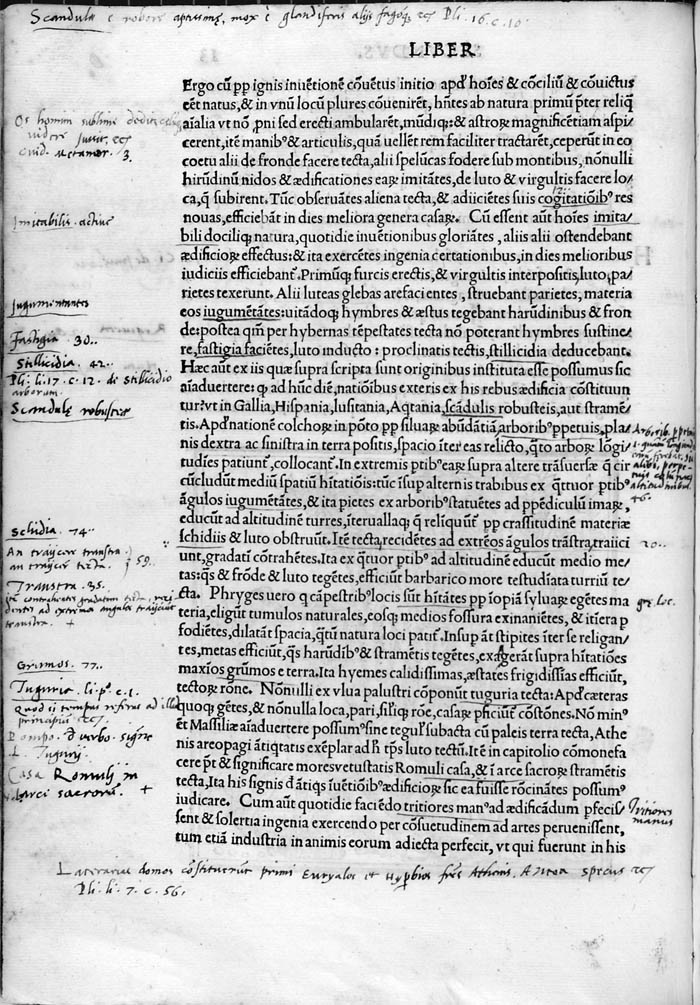 Scandulæ e robore aptissimę, mox è glandiferis alijs fagoq₃ Pli. 16. c. 10.
LIBER
Ergo cū pp ignis inuētionē cōuētus initio apđ hoīes & cōciliū & cōuictus
eēt natus, & in vnū locū plures cōuenirēt, hn̄tes ab natura primū p̄ter reliq̄
aīalia vt nō ,pni sed erecti ambularēt, mūdiq;: & astroꝝ magnificētiam aspi/
cerent, itē manibꝰ & articulis, quā uellēt rem faciliter tractarēt, ceperūt in eo
coetu alii de fronde facere tecta, alii spelūcas fodere sub montibus, nōnulli
hirūdinū nidos & ædificationes eaꝝ imitātes, de luto & virgultis facere lo/
ca, q̄ subirent. Tūc obseruātes aliena tecta, & adiiciētes suis cogitatiōibꝰ res
nouas, efficiebāt in dies meliora genera casaꝝ. Cū essent aūt hoīes imita/
bili dociliq; natura, quotidie inuētionibus gloriātes, aliis alii ostendebant
ædificioꝝ effectus: & ita exercētes ingenia certationibus, in dies melioribus
iudiciis efficiebant̄. Primūq; furcis erectis, & virgultis interpositis, luto, pa/
rietes texerunt. Alii luteas glebas arefacientes, struebant parietes, materia
eos iugumētātes: uitādoq; hymbres & æstus tegebant harūdinibus & fron
de: postea qm̄ per hybernas tēpestates tecta nō poterant hymbres sustine/
re, fastigia faciētes, luto inducto: proclinatis tectis, stillicidia deducebant.
Hæc aūt ex iis quæ supra scripta sunt originibus instituta esse possumus sic
aīaduertere: q̄ ad hūc diē, natiōibus exteris ex his rebus ædificia cōstituun
tur: vt in Gallia, Hispania, lusitania, Aq̄tania, scādulis robusteis, aut stramē/
tis. Apđ natione colchoꝝ in pōto pp siluaꝝ abūdātiā, arboribꝰ ppetuis, pla/
nis dextra ac sinistra in terra positis, spacio īter eas relicto, q̄to arboꝝ lōgi/
tudīes patiunt̄, collocant̄. In extremis ptibꝰ eaꝝ supra altere trāsuersæ q̄ cir
cūcludūt mediū spatiū hītatiōis: tūc īsup alternis trabibus ex q̄ttuor ptibꝰ
āgulos iugumētātes, & ita pietes ex arboribꝰ statuētes ad ppēdiculū imaꝝ,
educūt ad altitudinē turres, īteruallaq; q̄ relīquūt̄ pp crassitudinē materiæ
schidiis & luto obstruūt. Itē tecta, recidētes ad extreōs āgulos trāstra, traiici
unt, gradati cōtrahētes. Ita ex q̄ttuor ptibꝰ ad altitudinē educūt medio me/
tas: q̄s & frōde & luto tegētes, efficiūt barbarico more testudiata turriū te/
cta. Phryges uero q cāpestribꝰ locis sūt hītātes pp īopiā syluaꝝ egētes ma
teria, eligūt tumulos naturales, eosq; medios fossura exinaniētes, & itīera p
fodiētes, dilatāt spacia, q̄tū natura loci patit̄. Insup āt stipites īter se religan/
tes, metas efficiūt, q̄s harūdibꝰ & stramētis tegētes, exagerāt supra hītatiōes
maxīos grūmos e terra. Ita hyemes calidissimas, æstates frigidissīas efficiūt,
tectoꝝ rōne. Nōnulli ex vlua palustri cōponūt tuguria tecta: Apđ cæteras
quoq; gētes, & nōnulla loca, pari, siliq; rōe, casaꝝ pficiūt̄ cōstōnes. Nō minꝰ
et Massiliæ aīaduertere possumꝰ sine tegulꝭ subacta cū paleis terra tecta, Athe
nis areopagi ātiqtatis exēplar ad h̄ tp̄s luto tectū. Itē in capitolio cōmonefa
cere pōt & significare mores vetustatis Romuli casa, & ī arce sacroꝝ stramētis
tecta, Ita his signis đ ātiqs īuētiōibꝰ ædificioꝝ sic ea fuisse rōcinātes possumꝰ
iudicare. Cum aūt quotidie faciēdo tritiores manꝰ ad ædificādum pfecis/
sent & solertia ingenia exercendo per cōsuetudinem ad artes peruenissent,
tum etiā industria in animis eorum adiecta perfecit, vt qui fuerunt in his
Os homini sublime dedit
uidere iussit.
Ouid. Metamor. 3.
Imitabilis. actiue
Iugumentantes
Fastigia 30..
Stillicidia. 42..
Pli. li. 17. c. 12. de stillicidio
arborum.
Scandulę robusteæ
Schidia. 74..
An traijcere transtra.
an traijcere tecta. 59..
Transtra. 35.
Grumos. 77..
Tuguria. li. pº. c. 1.
Quod ii tempus referas ad illa
principiū
Pompo. đ verbo. signi
L. Tugurij.
Casa Romuli in
arci sacrorū. +
46.
20..
Tritiores
manus
Laterarias domos cōstituerūt primi Euryalos et Hyperbios frēs Athenis. Antea specus
Pli. li. 7. c. 56.